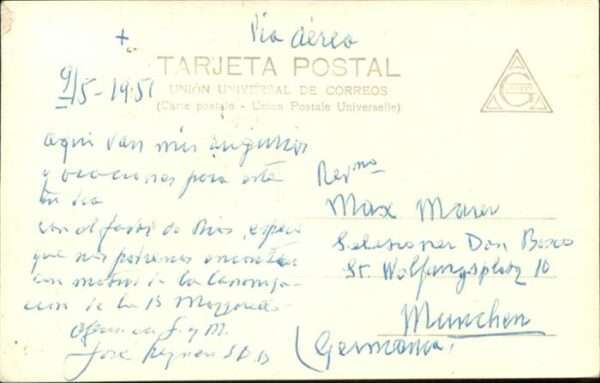 + Via aérea
TARJETA POSTAL
UNIÓN UNIVERSAL DE CORREOS
(Carte postale - Union Postale Universelle)
9/5-1951
aqui van mis
y oraciones para este
dia
con el favor de Dios, espero
que nos podremos encontrar
con motivo de la Canoniza-
cion de la B Mazzarello
José SDB
Revmo
Max Maier
Salesianer Don Bosco
St. Wolfgangsplatz 10
München
(Germania)